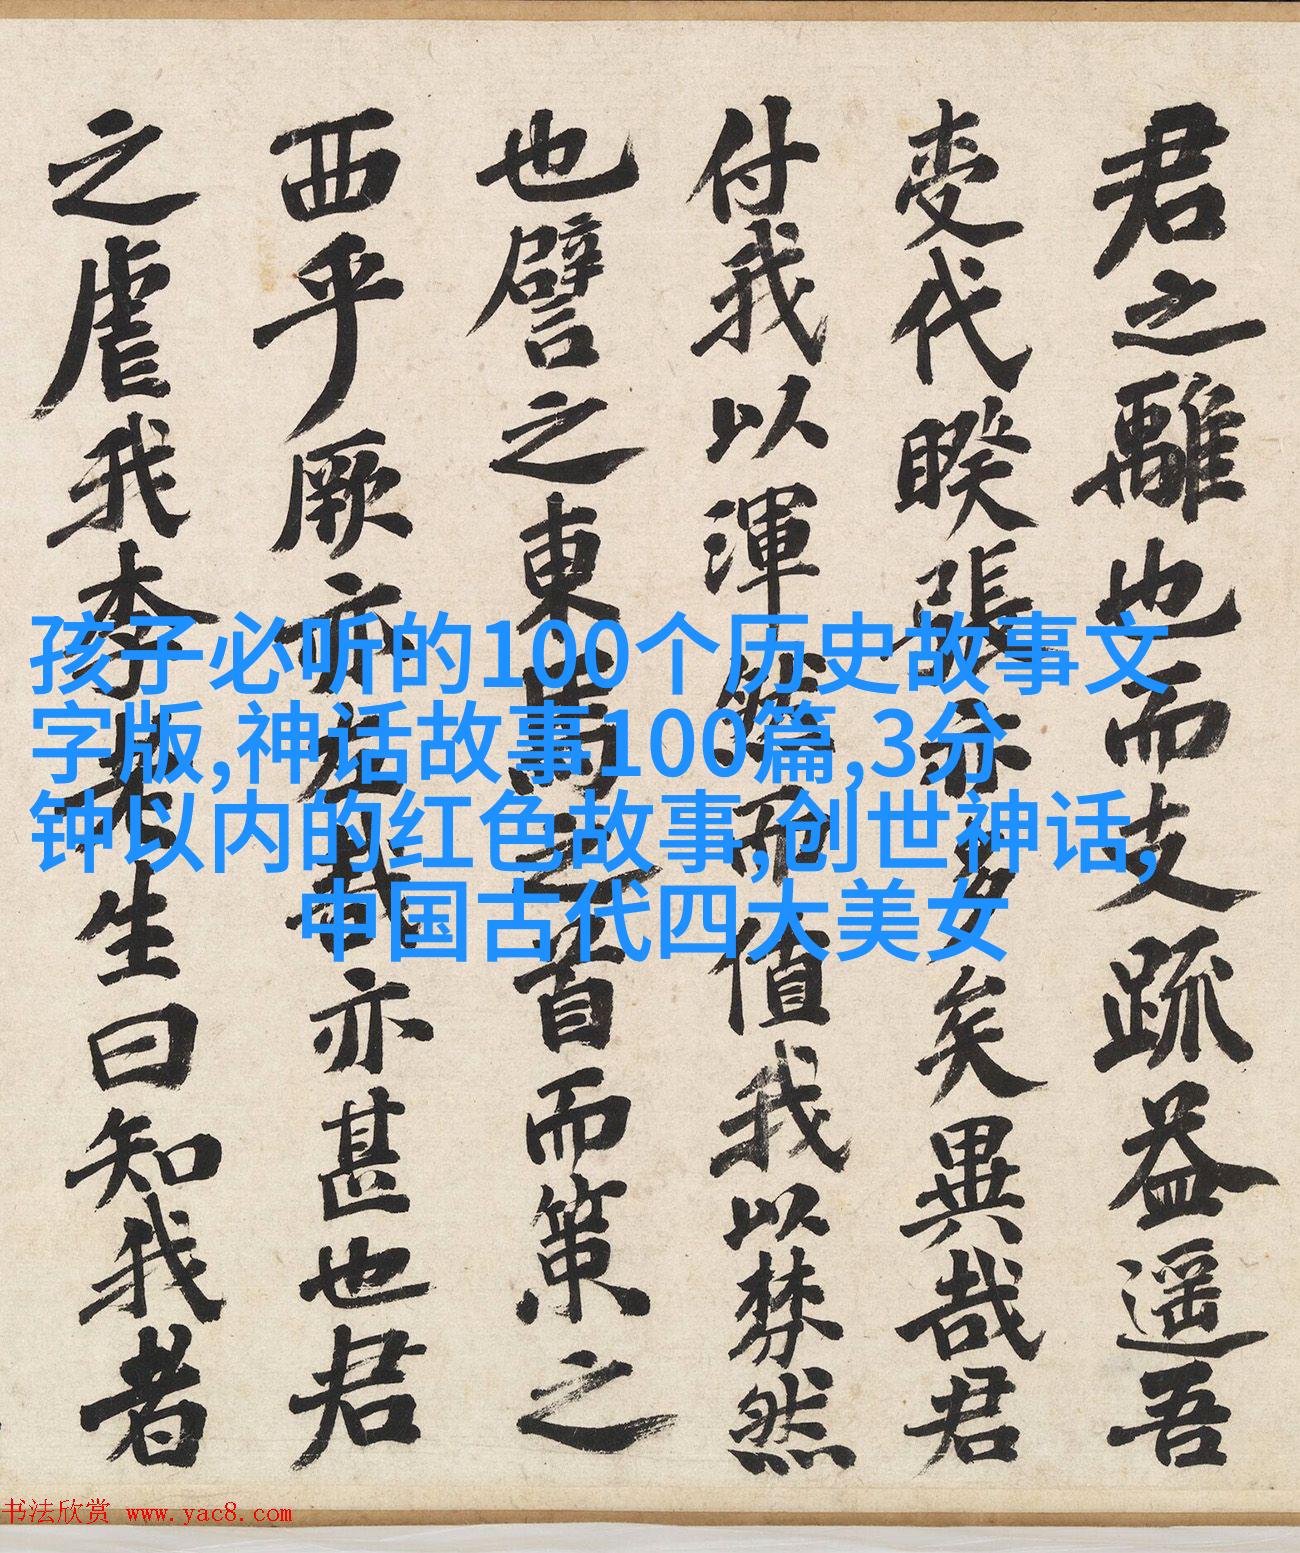 君之離也而支疏益遥吾
代睽張亦多矣異哉君
付我以渾而值我以棼然
也譬之東之首而策之
西乎厥亦左哉亦甚也君
之虐我生曰知我者
孩子必听的100个历史故事文
字版,神话故事100篇,3分
钟以内的红色故事,创世神话,
中国古代四大美女
书法欣赏 www.yac8.com